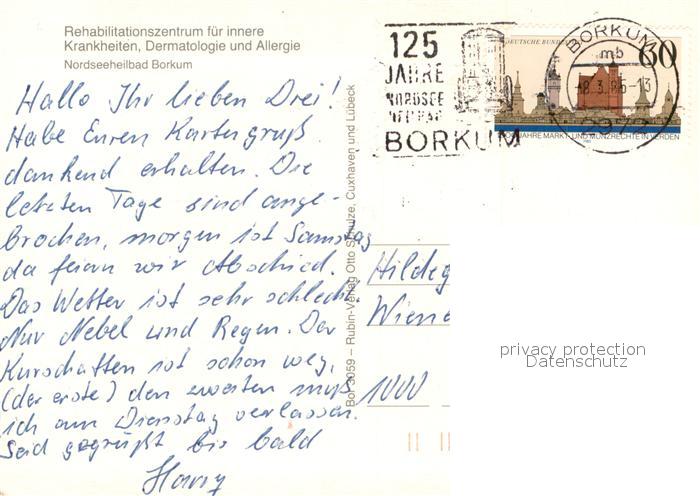 Rehabilitationszentrum für innere
Krankheiten, Dermatologie und Allergie
Nordseeheilbad Borkum
Hallo Ihr lieben Drei!
Habe Euren Kartengruß
dankend erhalten. Die
letzten Tage sind ange-
brochen, morgen ist Samstag
da feiern wir Abschied.
Das Wetter ist sehr schlecht.
Nur Nebel und Regen. Der
Kurschatten ist schon weg,
(der erste) den zweiten muß
ich am Dienstag verlassen.
Seid gegrüßt bis bald
Harry
Bor 3059 – Rubin-Verlag Otto Schulze, Cuxhaven und Lübeck
125
JAHRE
NORDSEE
BORKUM
DEUTSCHE BUND
60
JAHRE MARKT- UND MÜNZRECHTE IN VERDEN
BORKUM
mb
2972
Hildeg
Wiene
1000
privacy protection
Datenschutz